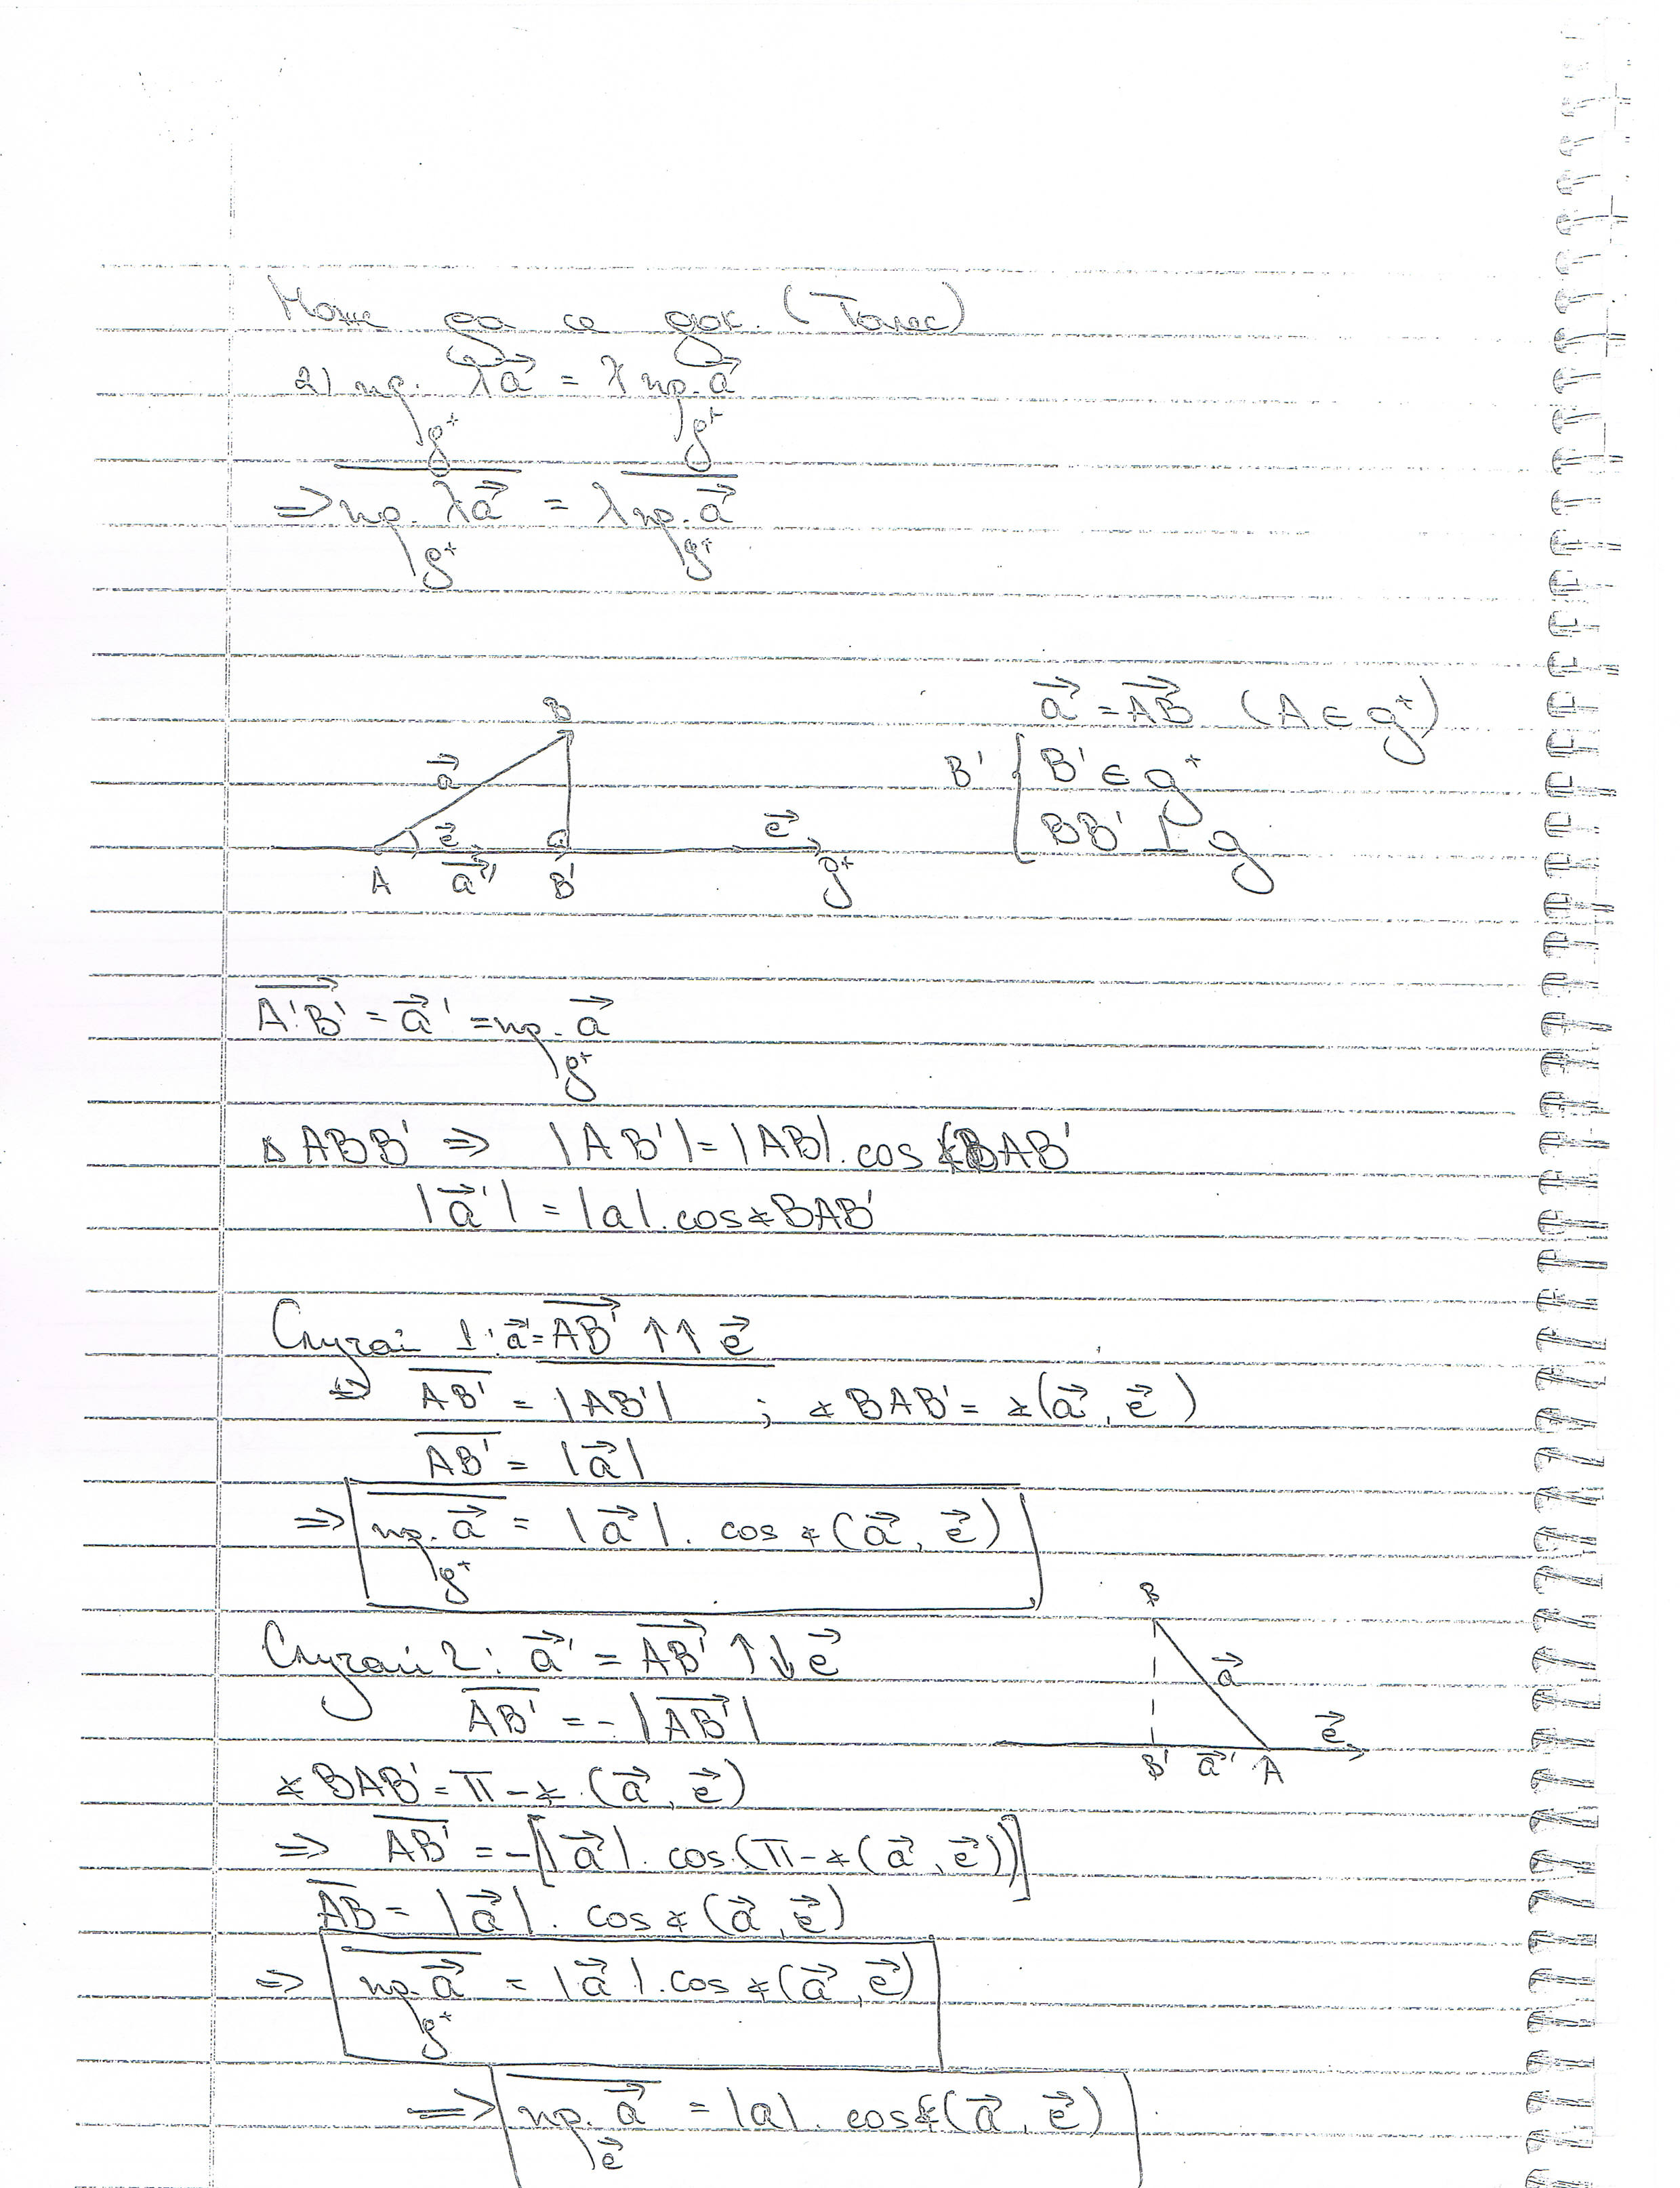 Може да се док. (Талес)
2) пр. g⁺ λa⃗ = λ пр. g⁺ a⃗
⇒ пр. g⁺ λa⃗ = λ пр. g⁺ a⃗
a⃗ = AB⃗ (A ∈ g⁺)
B' { B' ∈ g⁺
BB' ⊥ g
B
a⃗
e⃗
e⃗
A a⃗' B' g⁺
A'B'⃗ = a⃗' = пр. g⁺ a⃗
△ABB' ⇒ |AB'| = |AB|. cos ∢BAB'
|a⃗'| = |a|. cos ∢BAB'
Случай 1: a⃗' = AB'⃗ ↑↑ e⃗
⇒ A̅B̅'̅ = |AB'| ; ∢BAB' = ∢(a⃗, e⃗)
A̅B̅'̅ = |a⃗|
⇒ пр. g⁺ a⃗ = |a⃗|. cos ∢(a⃗, e⃗)
Случай 2: a⃗' = AB'⃗ ↑↓ e⃗
A̅B̅'̅ = -|AB'⃗|
B
a⃗
e⃗
B' a⃗' A
∢BAB' = π - ∢(a⃗, e⃗)
⇒ A̅B̅'̅ = -[|a⃗|. cos(π - ∢(a⃗, e⃗))]
A̅B̅ = |a⃗|. cos ∢(a⃗, e⃗)
⇒ пр. g⁺ a⃗ = |a⃗|. cos ∢(a⃗, e⃗)
⇒ пр. e⃗ a⃗ = |a|. cos ∢(a⃗, e⃗)